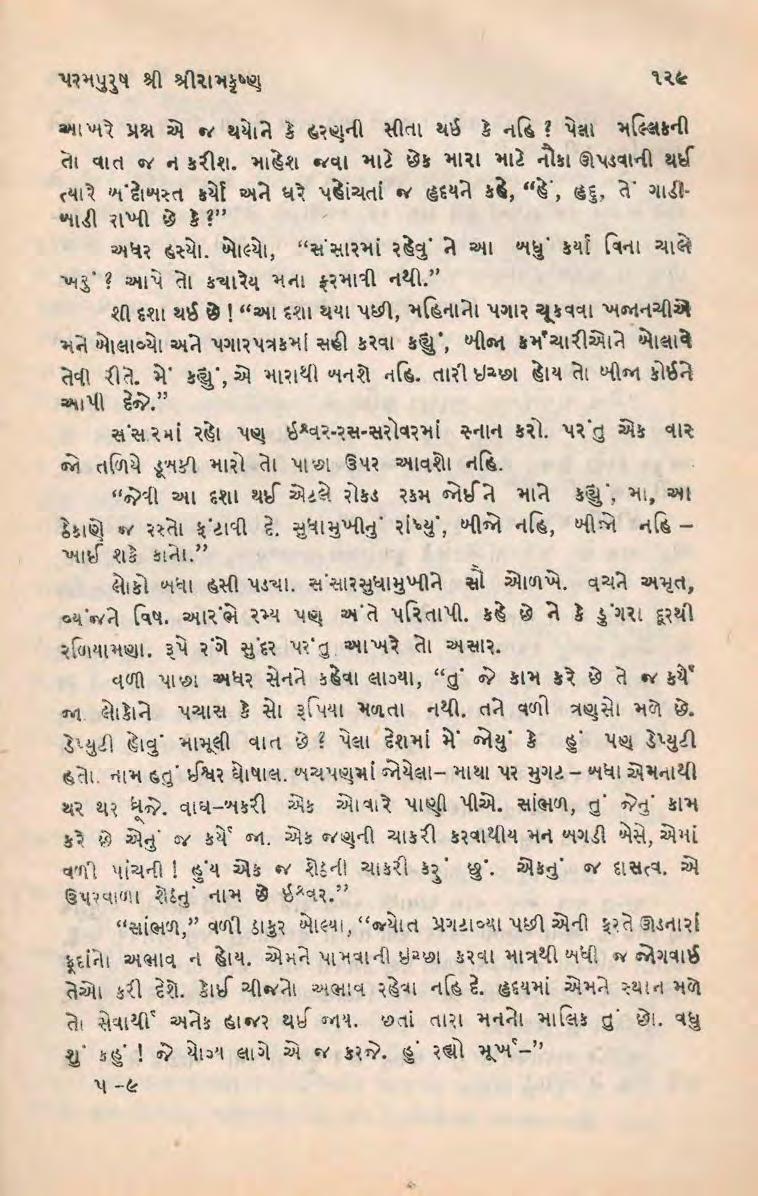 પરમપુરુષ શ્રી શ્રીરામકૃષ્ણ ૧૨૯
આખરે પ્રશ્ન એ જ થયોને કે હરણની સીતા થઈ કે નહિ ? પેલા મલ્લિકની
તો વાત જ ન કરીશ. માહેશ જવા માટે છેક મારા માટે નૌકા ઊપડવાની થઈ
ત્યારે બંદોબસ્ત કર્યો અને ઘરે પહોંચતાં જ હૃદયને કહે, “હેં, હૃદુ, તેં ગાડી-
બાડી રાખી છે કે ?”
અધર હસ્યો. બોલ્યો, “સંસારમાં રહેવું ને આ બધું કર્યા વિના ચાલે
ખરું ? આપે તો કયારેય મના ફરમાવી નથી.”
શી દશા થઈ છે ! “આ દશા થયા પછી, મહિનાનો પગાર ચૂકવવા ખજાનચીએ
મને બોલાવ્યો અને પગારપત્રકમાં સહી કરવા કહ્યું, બીજા કર્મચારીઓને બોલાવે
તેવી રીતે. મેં કહ્યું, એ મારાથી બનશે નહિ. તારી ઇચ્છા હોય તો બીજા કોઈને
આપી દેજે.”
સંસારમાં રહો પણ ઈશ્વર-રસ-સરોવરમાં સ્નાન કરો. પરંતુ એક વાર
જો તળિયે ડૂબકી મારો તો પાછા ઉપર આવશો નહિ.
“જેવી આ દશા થઈ એટલે રોકડ રકમ જોઈને માને કહ્યું, મા, આ
ઠેકાણે જ રસ્તો ફંટાવી દે. સુધામુખીનું રાંધ્યું, બીજો નહિ, બીજો નહિ –
ખાઈ શકે કાનો.”
લોકો બધા હસી પડયા. સંસારસુધામુખીને સૌ ઓળખે. વચને અમૃત,
વ્યંજને વિષ. આરંભે રમ્ય પણ અંતે પરિતાપી. કહે છે ને કે ડુંગરા દૂરથી
રળિયામણા. રૂપે રંગે સુંદર પરંતુ આખરે તો અસાર.
વળી પાછા અધર સેનને કહેવા લાગ્યા, “તું જે કામ કરે છે તે જ કર્યે
જા. લોકોને પચાસ કે સો રૂપિયા મળતા નથી. તને વળી ત્રણસો મળે છે.
ડેપ્યુટી હોવું મામૂલી વાત છે ? પેલા દેશમાં મેં જોયું કે હું પણ ડેપ્યુટી
હતો. નામ હતું ઈશ્વર ઘોષાલ. બચપણમાં જોયેલા– માથા પર મુગટ – બધા એમનાથી
થર થર ધ્રૂજે. વાઘ–બકરી એક ઓવારે પાણી પીએ. સાંભળ, તું જેનું કામ
કરે છે એનું જ કર્યે જા. એક જણની ચાકરી કરવાથીય મન બગડી બેસે, એમાં
વળી પાંચની ! હુંય એક જ શેઠની ચાકરી કરું છું. એકનું જ દાસત્વ. એ
ઉપરવાળા શેઠનું નામ છે ઈશ્વર.”
“સાંભળ,” વળી ઠાકુર બોલ્યા, “જ્યોત પ્રગટાવ્યા પછી એની ફરતે ઊડનારાં
ફૂદાંનો અભાવ ન હોય. એમને પામવાની ઇચ્છા કરવા માત્રથી બધી જ જોગવાઈ
તેઓ કરી દેશે. કોઈ ચીજનો અભાવ રહેવા નહિ દે. હૃદયમાં એમને સ્થાન મળે
તો સેવાર્થી અનેક હાજર થઈ જાય. છતાં તારા મનનો માલિક તું છો. વધુ
શું કહું ! જે યોગ્ય લાગે એ જ કરજે. હું રહ્યો મૂર્ખ–”
૫–૯